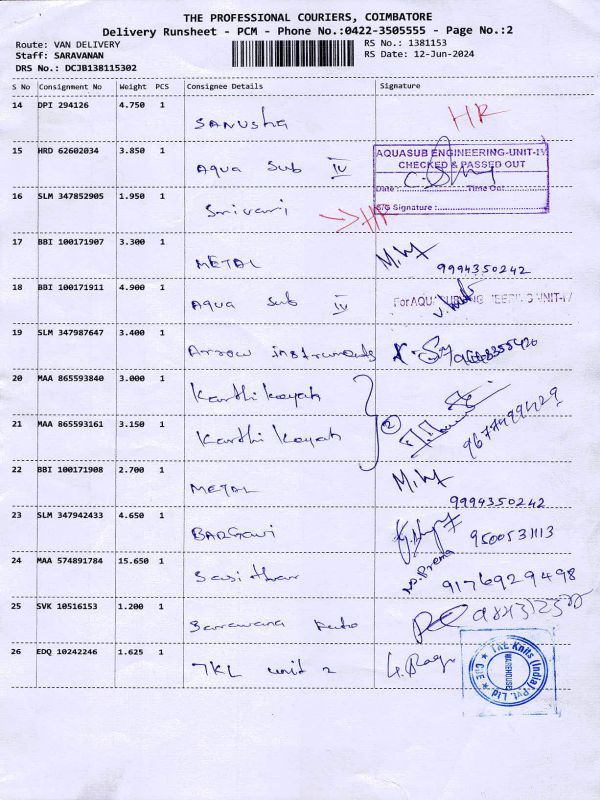 THE PROFESSIONAL COURIERS, COIMBATORE
Delivery Runsheet - PCM - Phone No.:0422-3505555 - Page No.:2
Route: VAN DELIVERY
RS No.: 1381153
Staff: SARAVANAN
RS Date: 12-Jun-2024
DRS No.: DCJB138115302
S No Consignment No Weight PCS Consignee Details Signature
14 DPI 294126 4.750 1
SANUSHA HR
15 HRD 62602034 3.850 1
AQUASUB ENGINEERING-UNIT-IV
CHECKED & PASSED OUT
Aqua Sub IV
Date: Time Out
16 SLM 347852905 1.950 1
S/G Signature:
Srivari HR
17 BBI 100171907 3.300 1
METAL
9994350242
18 BBI 100171911 4.900 1
Aqua Sub IV
19 SLM 347987647 3.400 1
Arrow instruments
20 MAA 865593840 3.000 1
Karthi Koyah
21 MAA 865593161 3.150 1
Karthi Koyah 2
22 BBI 100171908 2.700 1
METAL
9994350242
23 SLM 347942433 4.650 1
BARGAVI 9500531113
24 MAA 574891784 15.650 1
P. Prema
9176929498
25 SVK 10516153 1.200 1
Saravana Auto
26 EDQ 10242246 1.625 1
TKL unit 2
TKL Knits (India) Pvt. Ltd
WAREHOUSE
CBE